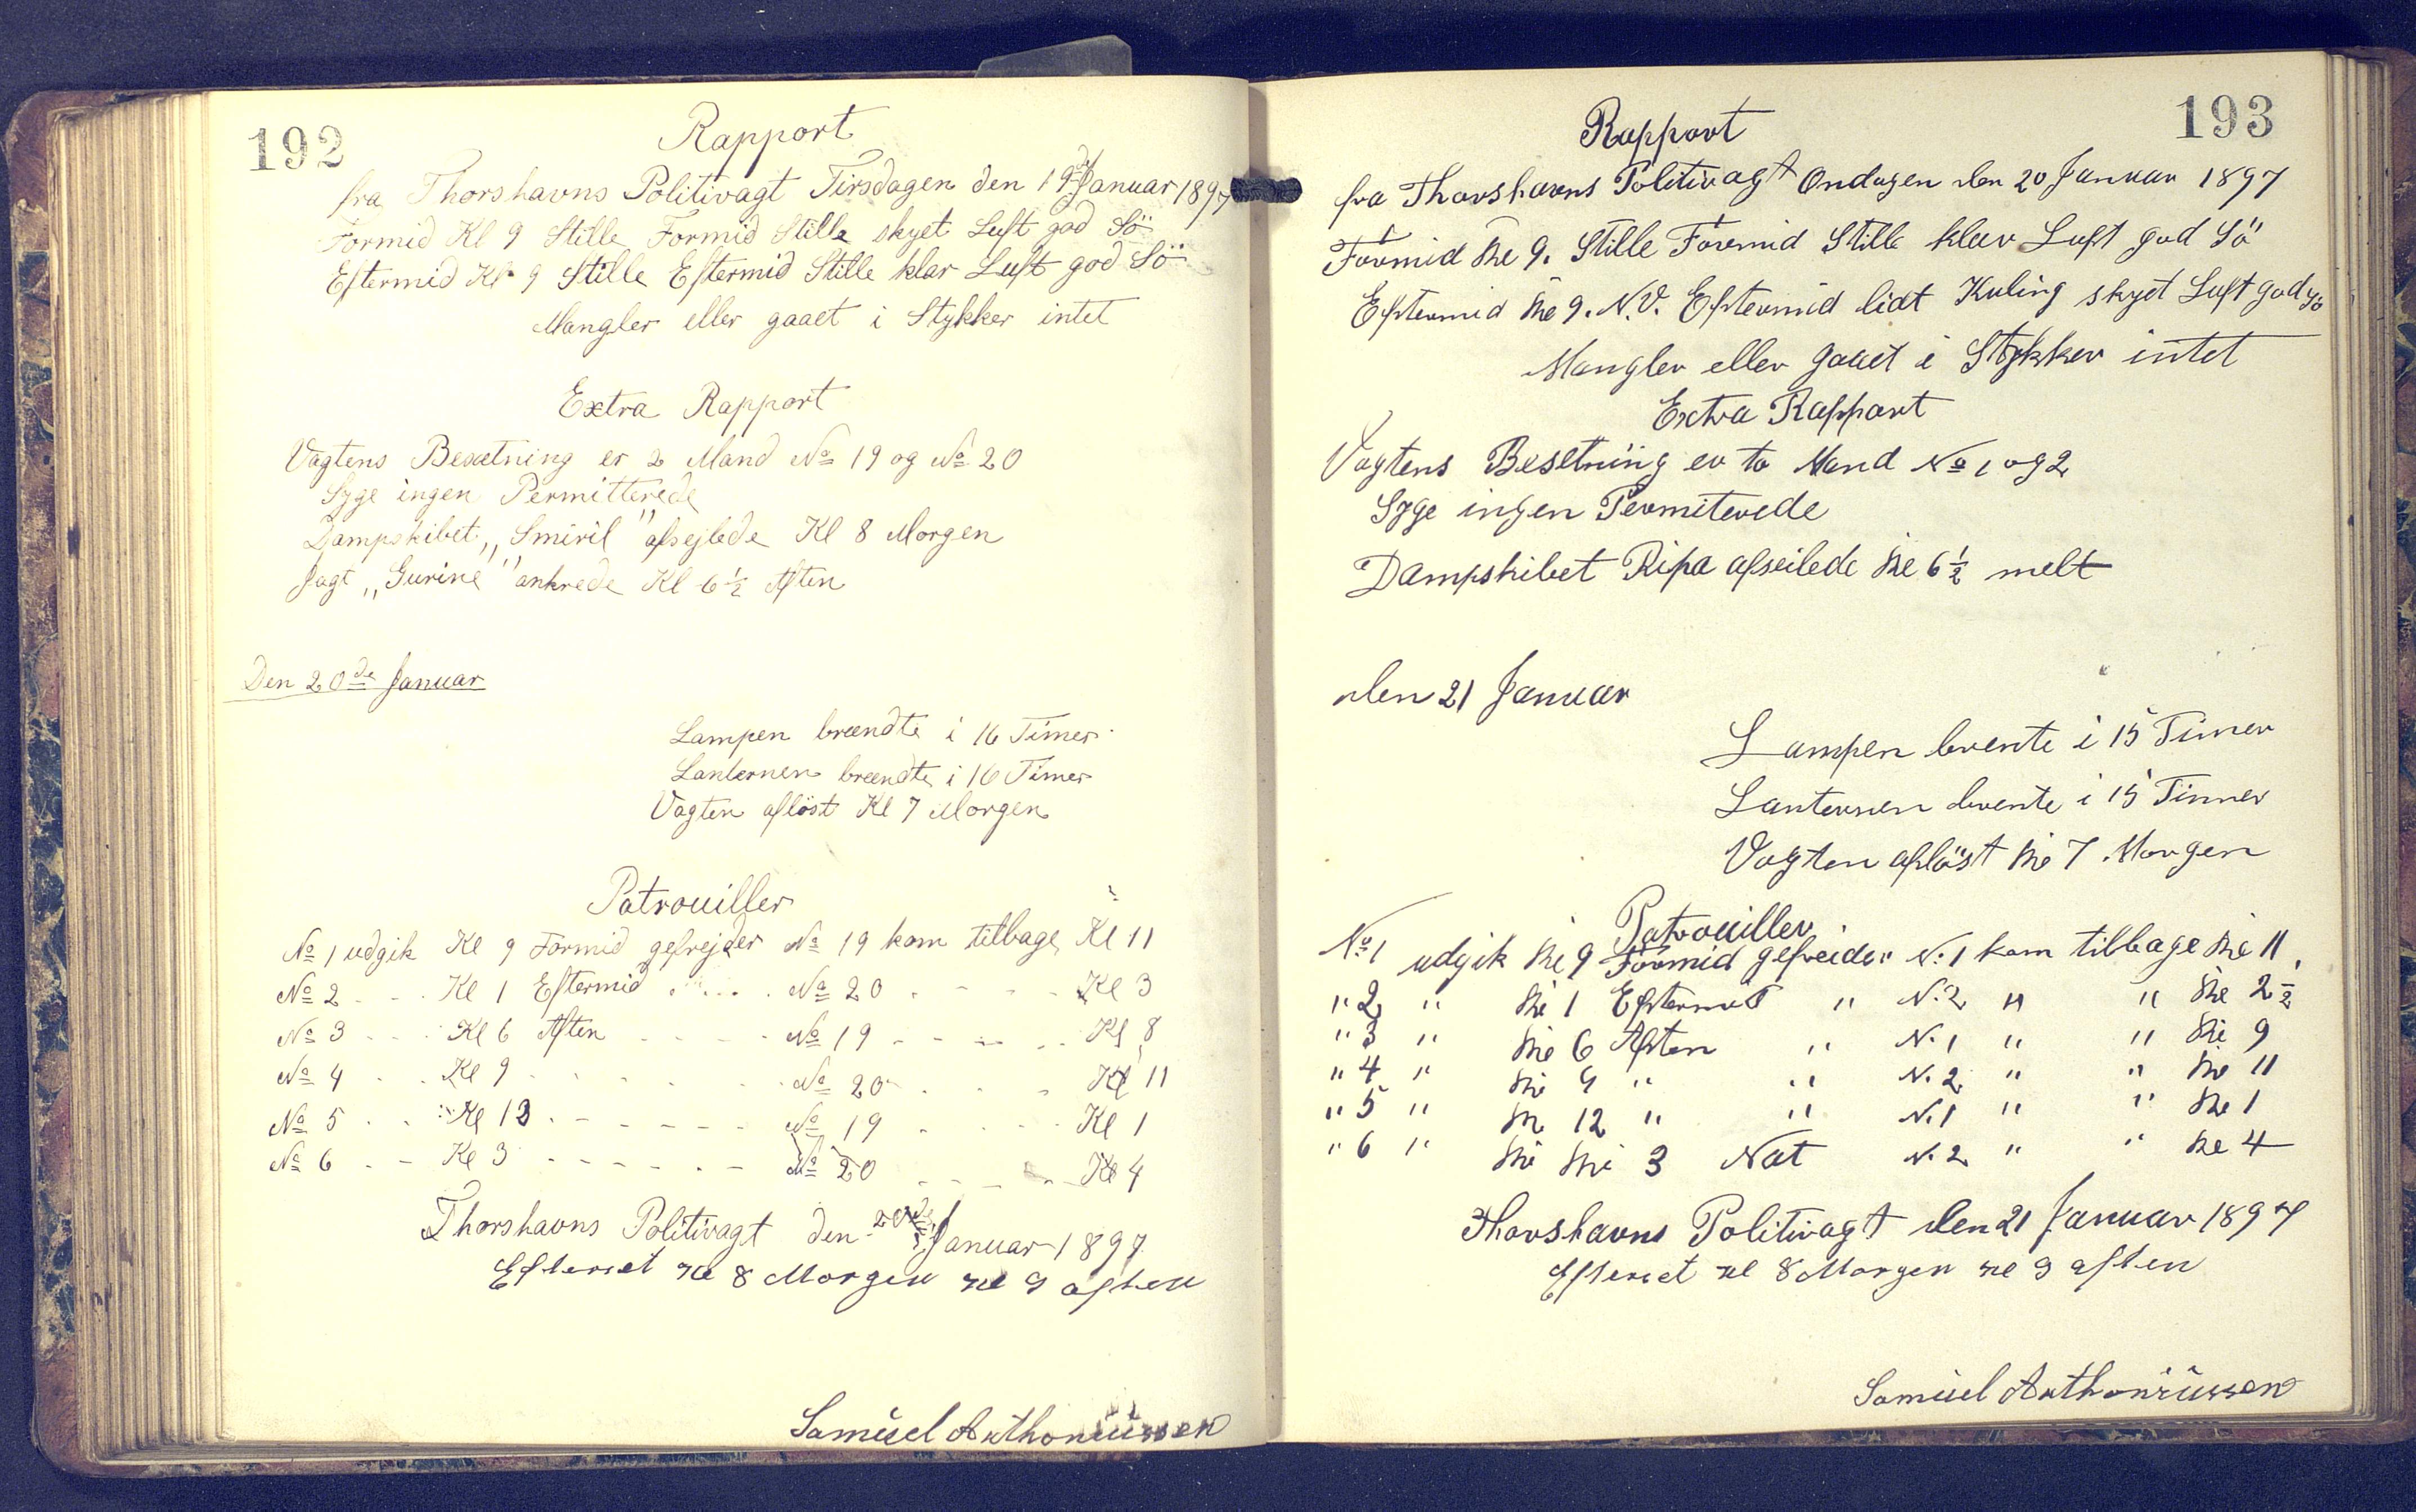 192
Rapport
fra Thorshavns Politivagt Tirsdagen den 19de Januar 1897
Formid Kl 9 Stille Formid Stille skyet Luft god Sö
Eftermid Kl 9 Stille Eftermid Stille klar Luft god Sö
Mangler eller gaaet i Stykker intet
Extra Rapport
Vagtens Besætning er 2 Mand No 19 og No 20
Syge ingen Permitterede
Dampskibet „Smiril" afsejlede Kl 8 Morgen
Jagt „Gurine" ankrede Kl 6½ Aften
Den 20de Januar
Lampen brændte i 16 Timer
Lanternen brændte i 16 Timer
Vagten aflöst Kl 7 Morgen
Patrouiller
No 1 udgik Kl 9 Formid gefrejder No 19 kom tilbage Kl 11
No 2 - - Kl 1 Eftermid - - - No 20 - - - - Kl 3
No 3 - - Kl 6 Aften - - - - No 19 - - - - Kl 8
No 4 - - Kl 9 - - - - - - No 20 - - - Kl 11
No 5 - - Kl 12 - - - - - - No 19 - - - - Kl 1
No 6 - - Kl 3 - - - - - - No 20 - - - - Kl 4
Thorshavns Politivagt den 20de Januar 1897
Efterset Kl 8 Morgen Kl 9 aften
Samuel Anthoniussen
193
Rapport
fra Thorshavns Politivagt Ondagen den 20 Januar 1897
Formid Kl 9. Stille Foremid Stille klar Luft god Sö
Eftermid Kl 9. N.V. Eftermid lidt Kuling skyet Luft god Sö
Mangler eller gaaet i Stykker intet
Extra Rapport
Vagtens Besetning er to Mand No 1 og 2
Syge ingen Permiterede
Dampskibet Ripa afseilede Kl 6½ melt
den 21 Januar
Lampen brente i 15 Timer
Lanternen brente i 15 Timer
Vagten aflöst Kl 7 Morgen
Patrouiller
No 1 udgik Kl 9 Formid gefreider N. 1 kom tilbage Kl 11
" 2 " Kl 1 Eftermit " N. 2 " " Kl 2½
" 3 " Kl 6 Aften " N. 1 " " Kl 9
" 4 " Kl 9 " " N. 2 " " Kl 11
" 5 " Kl 12 " " N. 1 " " Kl 1
" 6 " Kl Kl 3 Nat N. 2 " " Kl 4
Thorshavns Politivagt den 21 Januar 1897
Efterset Kl 8 Morgen Kl 9 aften
Samuel Anthoniussen